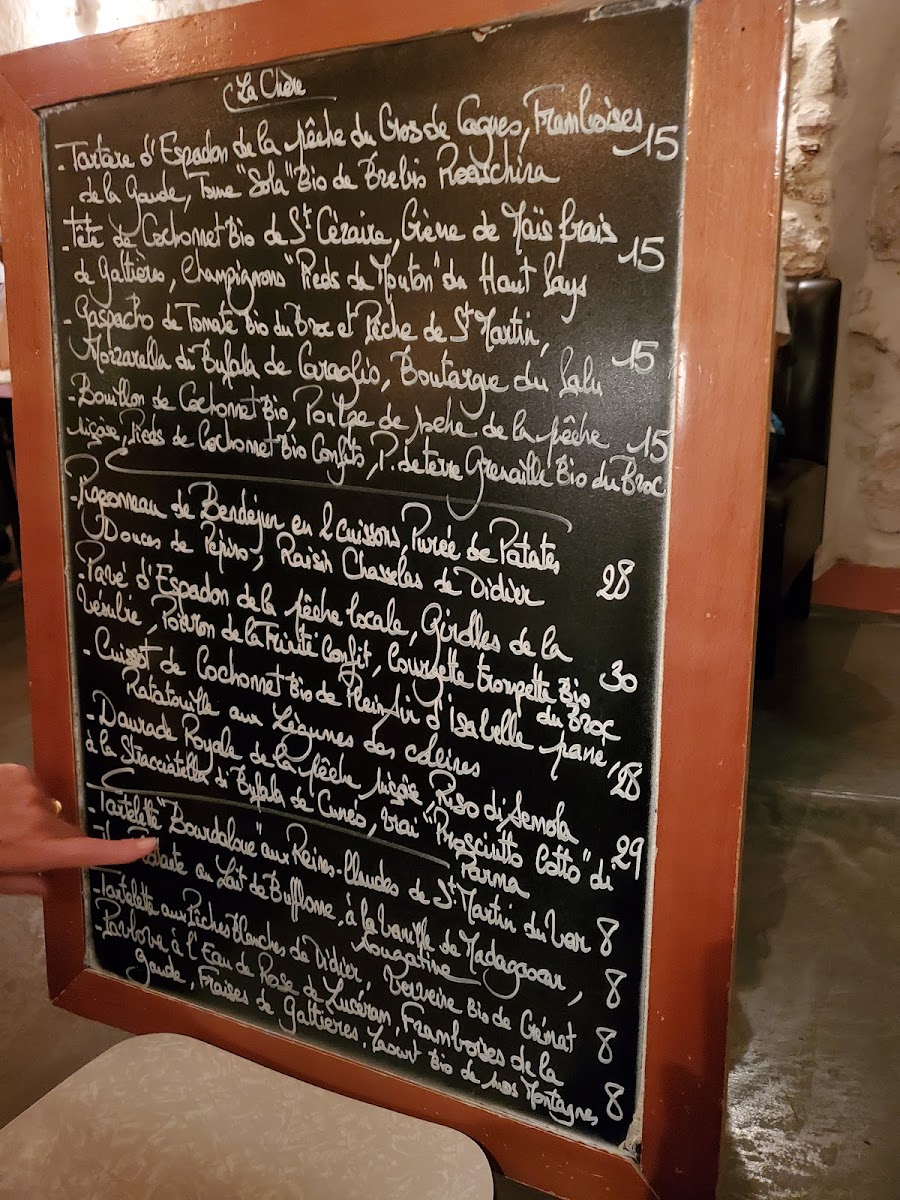 La Chère
- Tartare d'Espadon de la pêche du Cros de Cagnes, Framboises
de la Gaude, Tome "Sola" Bio de Brebis Roaschina 15
- Tête de Cochonnet Bio de St Cézaire, Crème de Maïs frais
de Gattières, Champignons "Pieds de Mouton" du Haut Pays 15
- Gaspacho de Tomate Bio du Broc et Pêche de St Martin,
Mozzarella di Bufala de Caraglio, Boutargue du 15
- Bouillon de Cochonnet Bio, Poulpe de de la pêche
niçoise, Pieds de Cochonnet Bio Confits, P. de terre Grenaille Bio du Broc 15
- de en 2 cuissons, Purée de Patates
Douces de Pépino, Raisin Chasselas de Didier 28
- Pavé d'Espadon de la pêche locale, Girolles de la
Vésubie, Poivron de la Confit, Courgette trompette Bio
du Broc 30
- Cuissot de Cochonnet Bio de Plein Air d'Isabelle pané,
Ratatouille aux Légumes des 28
- Daurade Royale de la pêche niçoise, Riso di Semola
à la Stracciatella di Bufala de Cunéo, vrai "Prosciutto Cotto" di
Parma 29
- Tartelette "Bourdaloue" aux Reines-Claudes de St Martin du Var 8
au Lait de Bufflonne, à la Vanille de Madagascar,
Nougatine 8
- Tartelette aux Pêches Blanches de Didier, Verveine Bio de 8
- Pavlova à l'Eau de Rose de Lucéram, Framboises de la
Gaude, Fraises de Gattières, Yaourt Bio de nos Montagnes 8